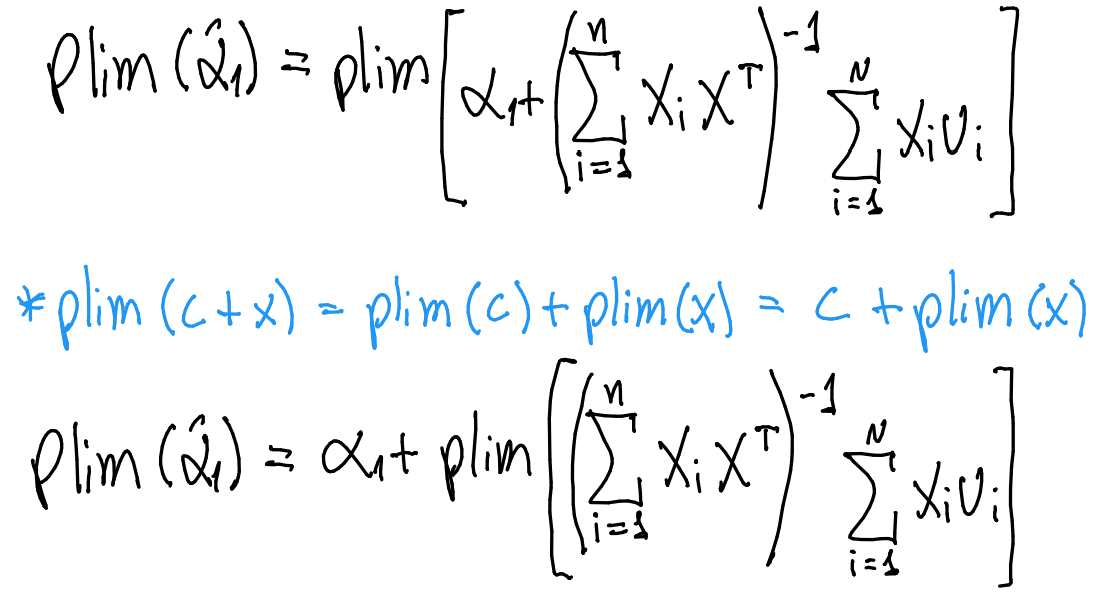 plim (α̂₁) = plim [ α₁ + ( ∑_{i=1}^{n} X_i X^T )^{-1} ∑_{i=1}^{N} X_i U_i ]
* plim (c + x) = plim (c) + plim (x) = c + plim (x)
plim (α̂₁) = α₁ + plim [ ( ∑_{i=1}^{n} X_i X^T )^{-1} ∑_{i=1}^{N} X_i U_i ]